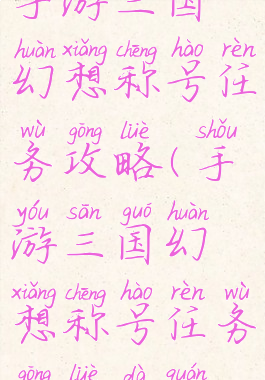 手游三国
huàn xiǎng chēng hào rèn
幻想称号任
wù gōng lüè shǒu
务攻略(手
yóu sān guó huàn
游三国幻
xiǎng chēng hào rèn wù
想称号任务
gōng lüè dà quán